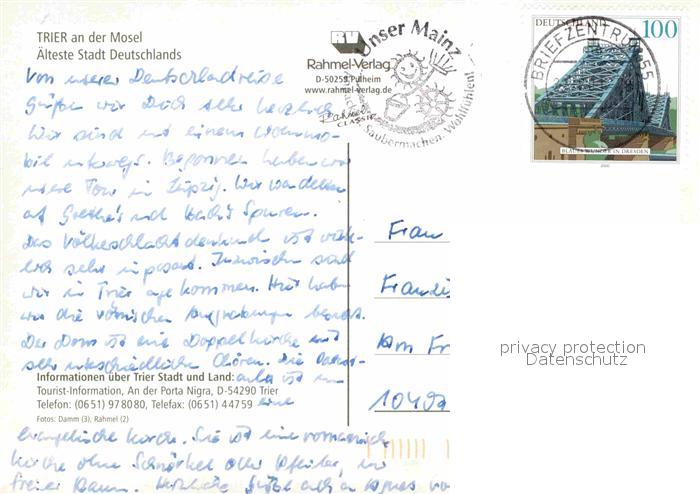 TRIER an der Mosel
Älteste Stadt Deutschlands
RV
Rahmel-Verlag
D-50259 Pulheim
www.rahmel-verlag.de
Rahmel
CLASSIC
Unser Mainz
Saubermachen. Wohlfühlen!
BRIEFZENTRUM 55
DEUTSCHLAND 100
BLAUES WUNDER IN DRESDEN
2000
Von unserer Deutschlandreise
Grüßen wir Dich sehr herzlich.
Wir sind mit einem Wohnmo-
bil unterwegs. Begonnen haben wir
unsere Tour in Leipzig. Wir wandelten
auf Goethe's und Bach's Spuren.
Das Völkerschlachtdenkmal ist wirk-
lich sehr imposant. Inzwischen sind
wir in Trier angekommen. Hier haben
wir die römischen Ausgrabungen besucht.
Der Dom ist eine Doppelkirche mit
sehr unterschiedlichen Chören. Die
ist
eine
evangelische Kirche. Sie ist eine romanische
Kirche ohne Schnörkel oder Pfeiler, ein
freier Raum. Herzliche Grüße auch an
Informationen über Trier Stadt und Land:
Tourist-Information, An der Porta Nigra, D-54290 Trier
Telefon: (06 51) 97 80 80, Telefax: (06 51) 4 47 59
Fotos: Damm (3), Rahmel (2)
Frau
Franzi
Am Fr
1049
privacy protection
Datenschutz